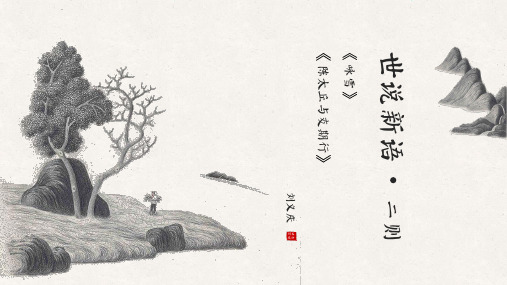 世说新语·二则
《咏雪》
《陈太丘与友期行》
刘义庆